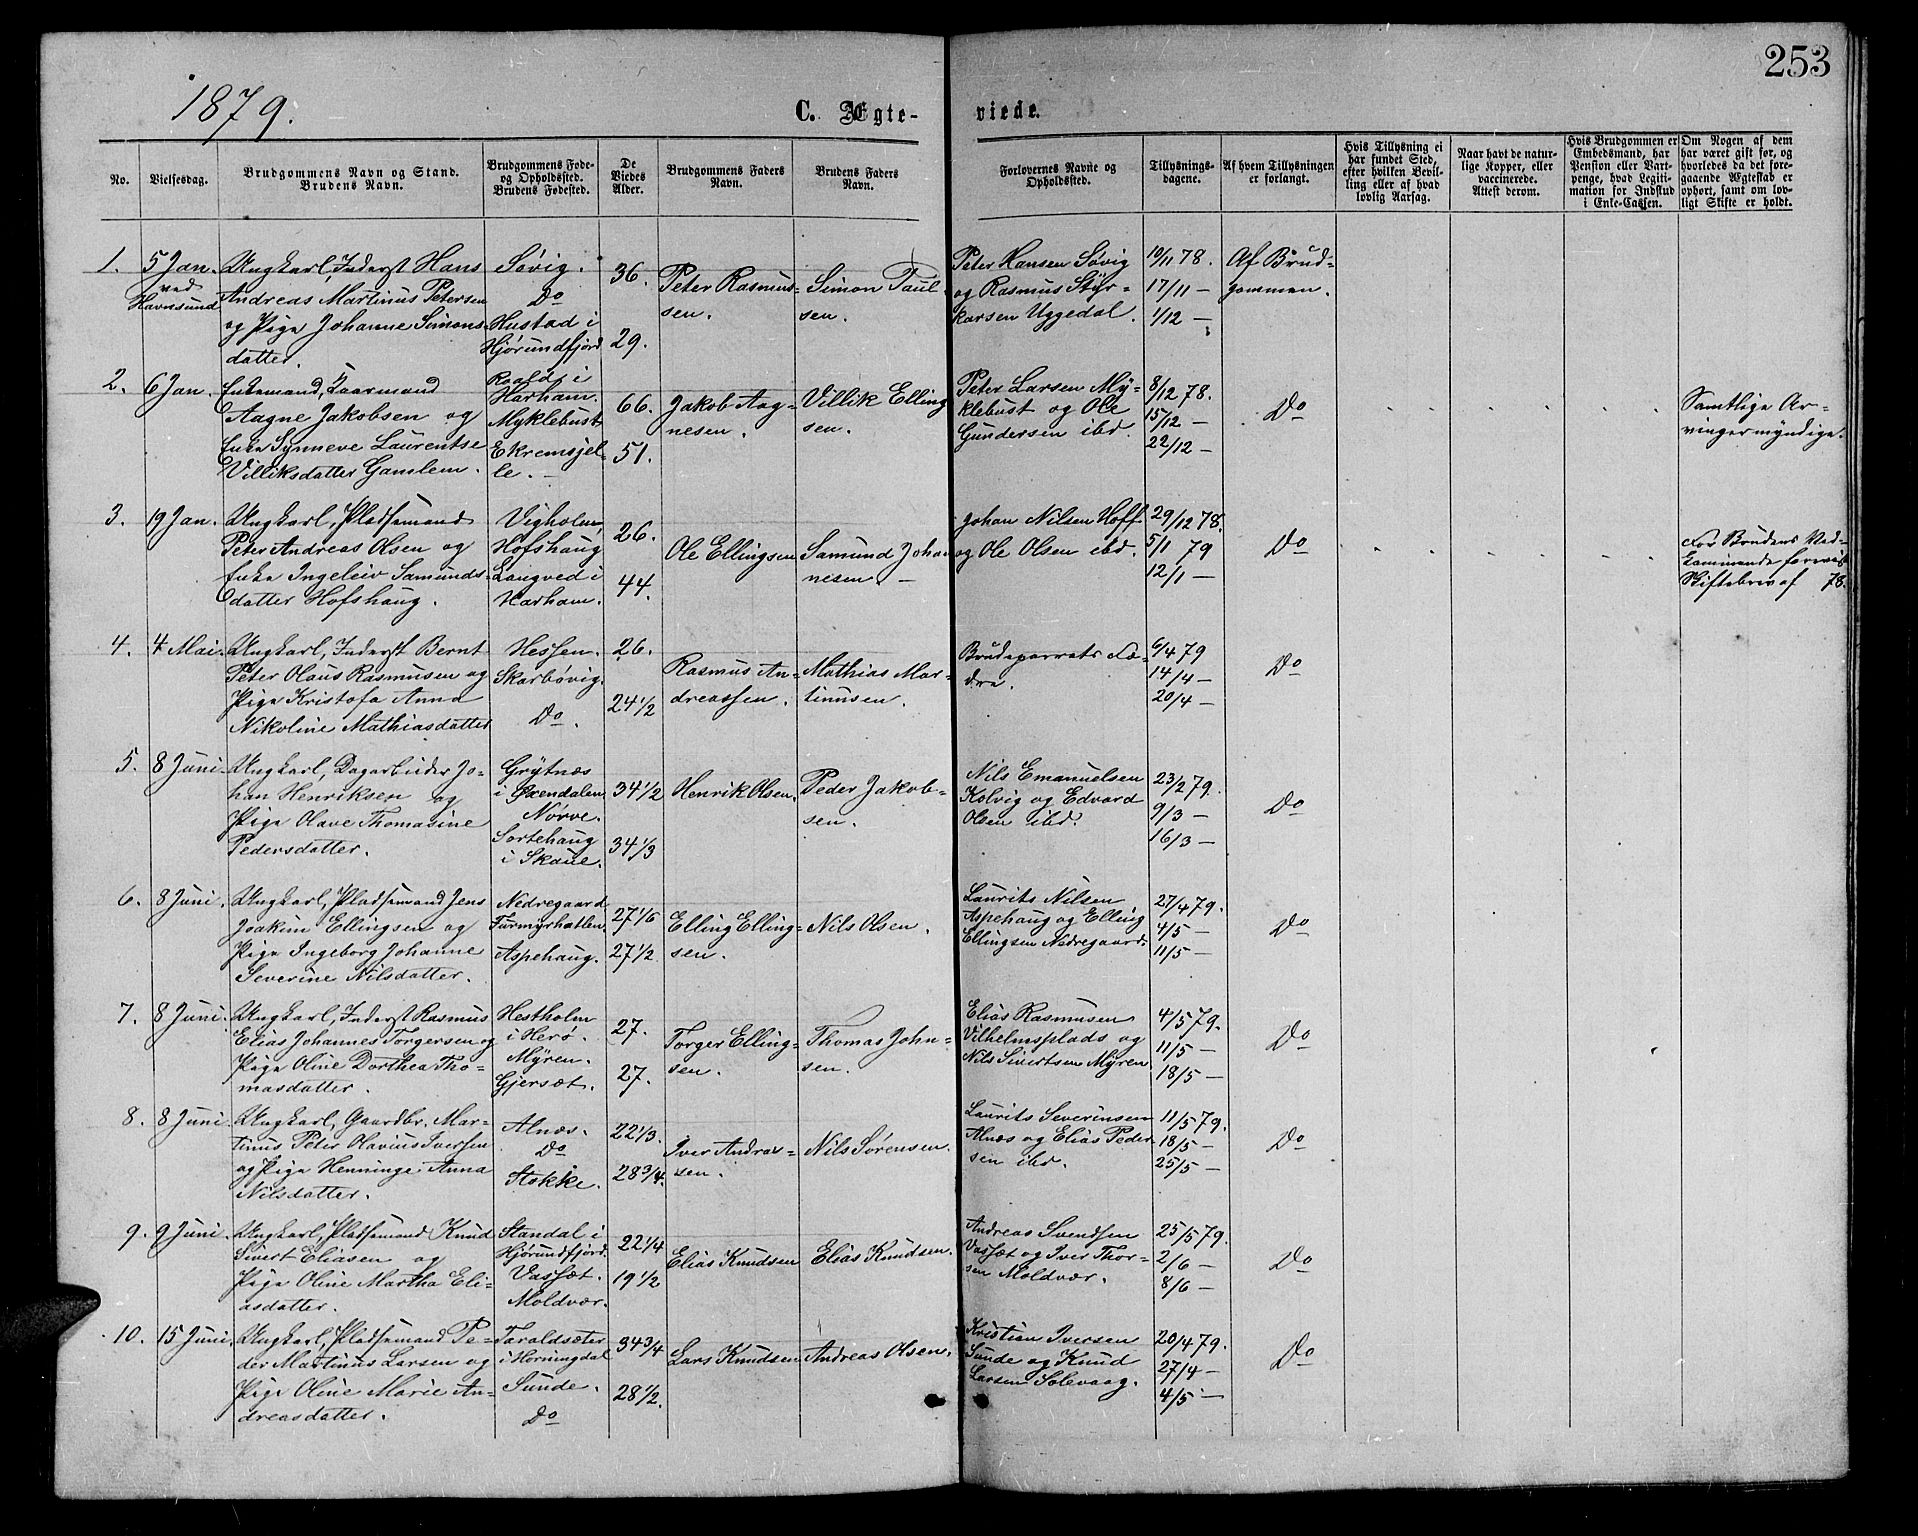 253
1879.
C. Ægte-
viede.
No.
Vielsesdag.
Brudgommens Navn og Stand.
Brudens Navn.
Brudgommens Føde-
og Opholdssted.
Brudens Fødested.
De
Viedes
Alder.
Brudgommens Faders
Navn.
Brudens Faders
Navn.
Forlovernes Navne og
Opholdssted.
Tillysnings-
dagene.
Af hvem Tillysningen
er forlangt.
Hvis Tillysning ei
har fundet Sted,
efter hvilken Bevil-
ling eller af hvad
lovlig Aarsag.
Naar havt de natur-
lige Kopper, eller
vaccinerede.
Attest derom.
Hvis Brudgommen er
Embedsmand, har
Pension eller Vart-
penge, hvad Legiti-
mation for Indskud
i Enke-Cassen.
Om Nogen af dem
har været gift før, og
hvorledes da det fore-
gaaende Ægteskab er
ophørt, samt om lov-
ligt Skifte er holdt.
1.
5 Jan.
ved
Havnsund
Ungkarl, Inderst Hans
Andreas Martinus Petersen
og Pige Johanne Simons-
datter.
Søvig.
Do
Hustad i
Hjørundfjord
36.
29.
Peter Rasmus-
sen.
Simon Paul-
sen.
Peter Hansen Søvig
og Rasmus Styr-
karsen Uggedal.
10/11 78.
17/11 —
1/12 —
Af Brud-
gommen.
2.
6 Jan.
Enkemand, Kaarmand
Aagne Jakobsen og
Enke Synneve Laurentse
Villiksdatter Gamlem.
Roald i
Harham.
Myklebust
Ekremsjel-
le. —
66.
51.
Jakob Aag-
nesen.
Villik Elling
sen.
Peter Larsen My-
klebust og Ole
Gundersen ibd.
8/12 78.
15/12 —
22/12 —
Do
Samtlige Ar-
vinger myndige.
3.
19 Jan.
Ungkarl, Pladsemand
Peter Andreas Olsen og
Enke Ingeleiv Samunds-
datter Hofshaug.
Vigholm
Hofshaug
Langved i
Harham.
26.
44.
Ole Ellingsen
Samund Johan
nesen —
Johan Nilsen Hoff
og Ole Olsen ibd.
29/12 78.
5/1 79
12/1 —
Do
For Brudens Ved-
kommende forevist
Skiftebrev af 78.
4.
4 Mai.
Ungkarl, Inderst Bernt
Peter Olaus Rasmusen og
Pige Kristofa Anna
Nikoline Mathiasdatter
Hessen.
Skarbøvig.
Do.
26.
24 1/2
Rasmus An-
dreassen.
Mathias Mar-
tinusen.
Brudeparrets Fæ-
dre.
6/4 79
14/4 —
20/4 —
Do
5.
8 Juni.
Ungkarl, Dagarbeider Jo-
han Henriksen og
Pige Olave Thomasine
Pedersdatter.
Grytnæs
i Nørve.
Sortehaug
i Skoue.
34 1/2
34 1/3
Henrik Olsen.
Peder Jakob-
sen.
Nils Emanuelsen
Kolvig og Edvard
Olsen ibd.
23/2 79.
9/3 —
16/3 —
Do
6.
8 Juni.
Ungkarl, Pladsemand Jens
Joakim Ellingsen og
Pige Ingeborg Johanne
Severine Nilsdatter.
Nedregaard
Furmyrhatlen.
Aspehaug.
27 1/6
27 1/2
Elling Elling-
sen.
Nils Olsen.
Laurits Nilsen
Aspehaug og Elling
Ellingsen Nedregaard.
27/4 79.
4/5 —
11/5 —
Do
7.
8 Juni.
Ungkarl, Inderst Rasmus
Elias Johannes Torgersen og
Pige Oline Dorthea Tho-
masdatter.
Hestholm
i Herø.
Myren.
Gjersæt.
27.
27.
Torger Elling-
sen.
Thomas John-
sen.
Elias Rasmusen
Vilhelmsplads og
Nils Sivertsen Myren
4/5 79.
11/5 —
18/5 —
Do
8.
8 Juni.
Ungkarl, Gaardbr. Mar-
tinus Peter Olavius Iversen
og Pige Henninge Anna
Nilsdatter.
Alnæs.
Do
Stokke.
22 1/3.
28 3/4.
Iver Andrea-
sen.
Nils Sørensen.
Laurits Severinsen
Alnæs og Elias Peder
sen ibd.
11/5 79.
18/5 —
25/5 —
Do
9.
9 Juni.
Ungkarl, Pladsemand Knud
Sivert Eliasen og
Pige Oline Martha Eli-
asdatter.
Standal i
Hjørundfjord.
Vassæt.
Moldvær.
22 1/4
19 1/2
Elias Knudsen
Elias Knudsen.
Andreas Svendsen
Vassæt og Iver Thor-
sen Moldvær.
25/5 79.
2/6 —
8/6 —
Do
10.
15 Juni.
Ungkarl, Pladsemand Pe-
der Martinus Larsen og
Pige Oline Marie An-
dreasdatter.
Taraldsæter
i Horningdal
Sunde.
Do
34 3/4
28 1/2.
Lars Knudsen
Andreas Olsen.
Kristian Iversen
Sunde og Knud
Larsen Solevaag.
20/4 79.
27/4 —
4/5 —
Do